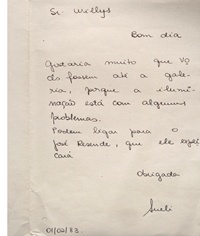 Sr. Willys
Bom dia
Gostaria muito que vo
cês fossem até a gale-
ria, porque a ilumi-
nação está com alguns
problemas.
Podem ligar para o
José Resende, que ele expli
cará
Obrigada
Sueli
01/02/83